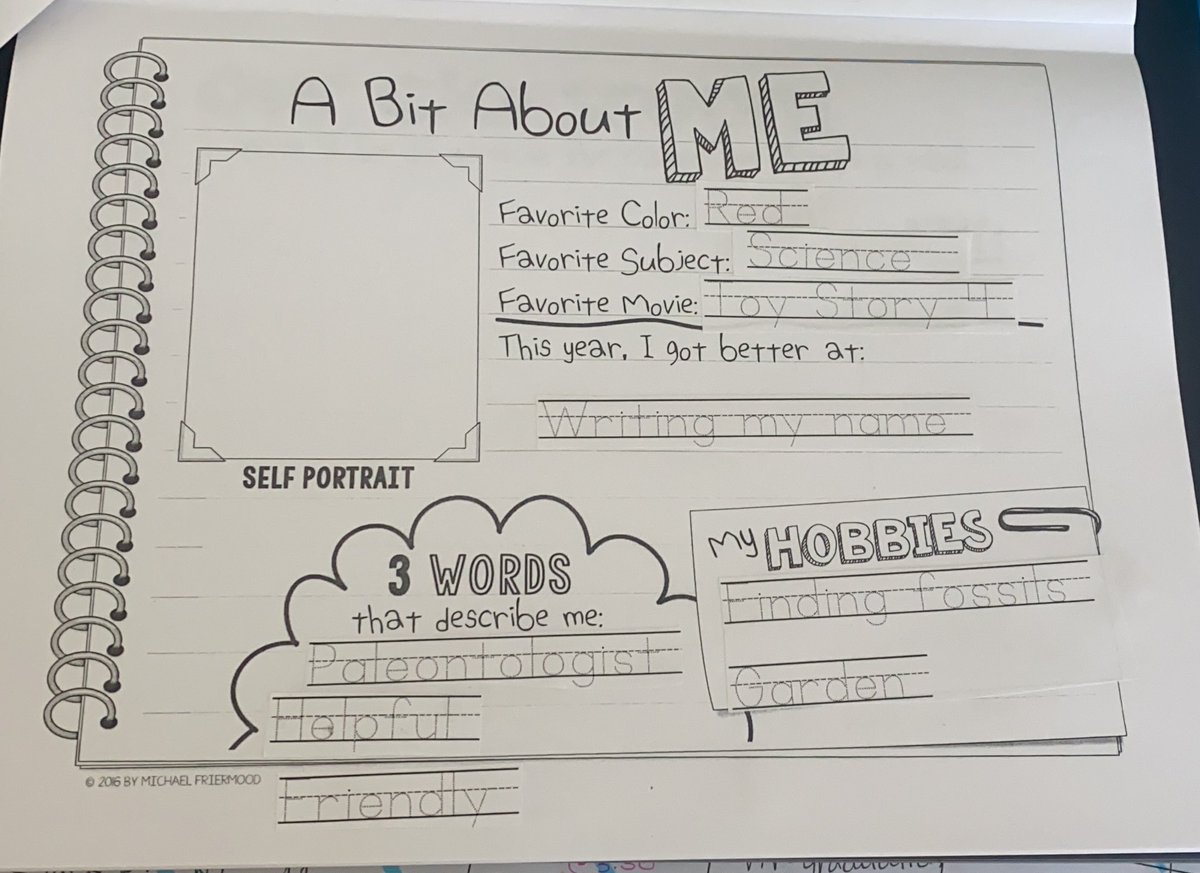 A Bit About ME
Favorite Color: Red
Favorite Subject: Science
Favorite Movie: Toy Story 4
This year, I got better at:
Writing my name
SELF PORTRAIT
3 WORDS
that describe me:
Paleontologist
Helpful
Friendly
My HOBBIES
Finding fossils
Garden
© 2016 BY MICHAEL FRIERMOOD